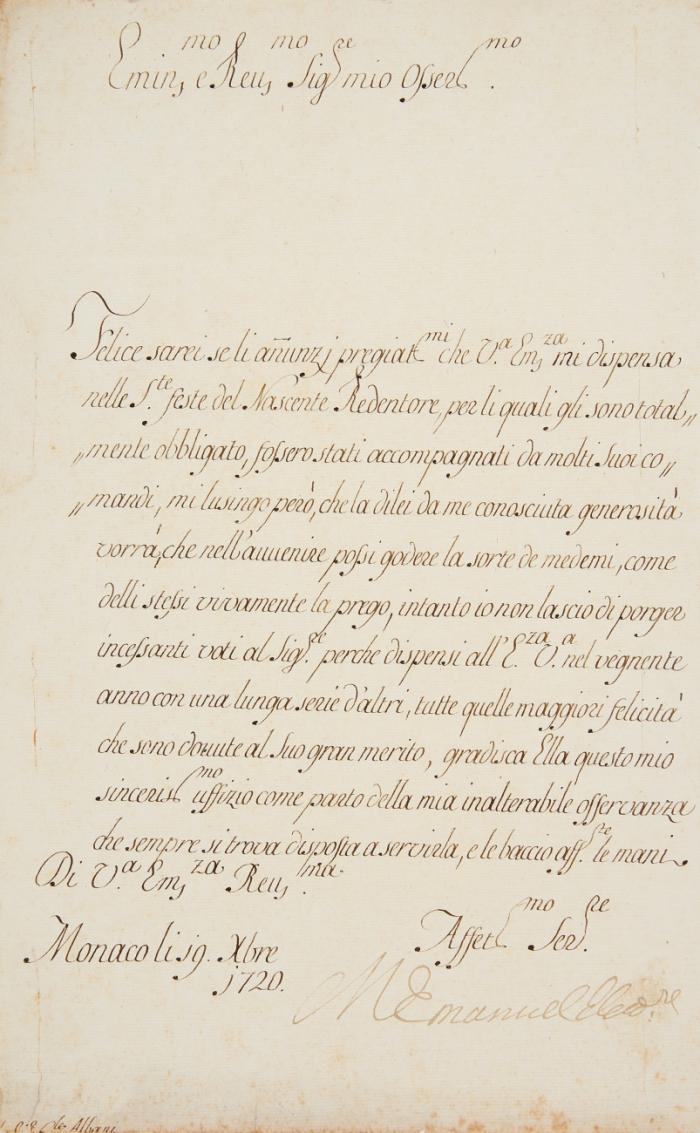 Emin,mo e Reu,mo Sigre mio Ossermo.
Felice sarei se li añunzj pregiatmi che V.a Em,za mi dispensa
nelle S.te feste del Nascente Redentore, per li quali gli sono total,,
,,mente obbligato, fossero stati accompagnati da molti Suoi co,,
,,mandi, mi lusingo però, che la di lei da me conosciuta generosità
vorrà, che nell'auuenire possi godere la sorte de medemi, come
delli stessi vivamente la prego, intanto io non lascio di porger
incessanti voti al Sig.re perche dispensi all'E.za V.a nel vegnente
anno con una lunga serie d'altri, tutte quelle maggiori felicità
che sono douute al Suo gran merito, gradisca Ella questo mio
sincerismo uffizio come parto della mia inalterabile osservanza
che sempre si trova disposta a servirla, e le baccio aff.re le mani.
Di V.a Em,za Reu,ma.
Affetmo Ser.re
Monaco li 19. Xbre
1720.
M Emanuel Elet.re
Albani